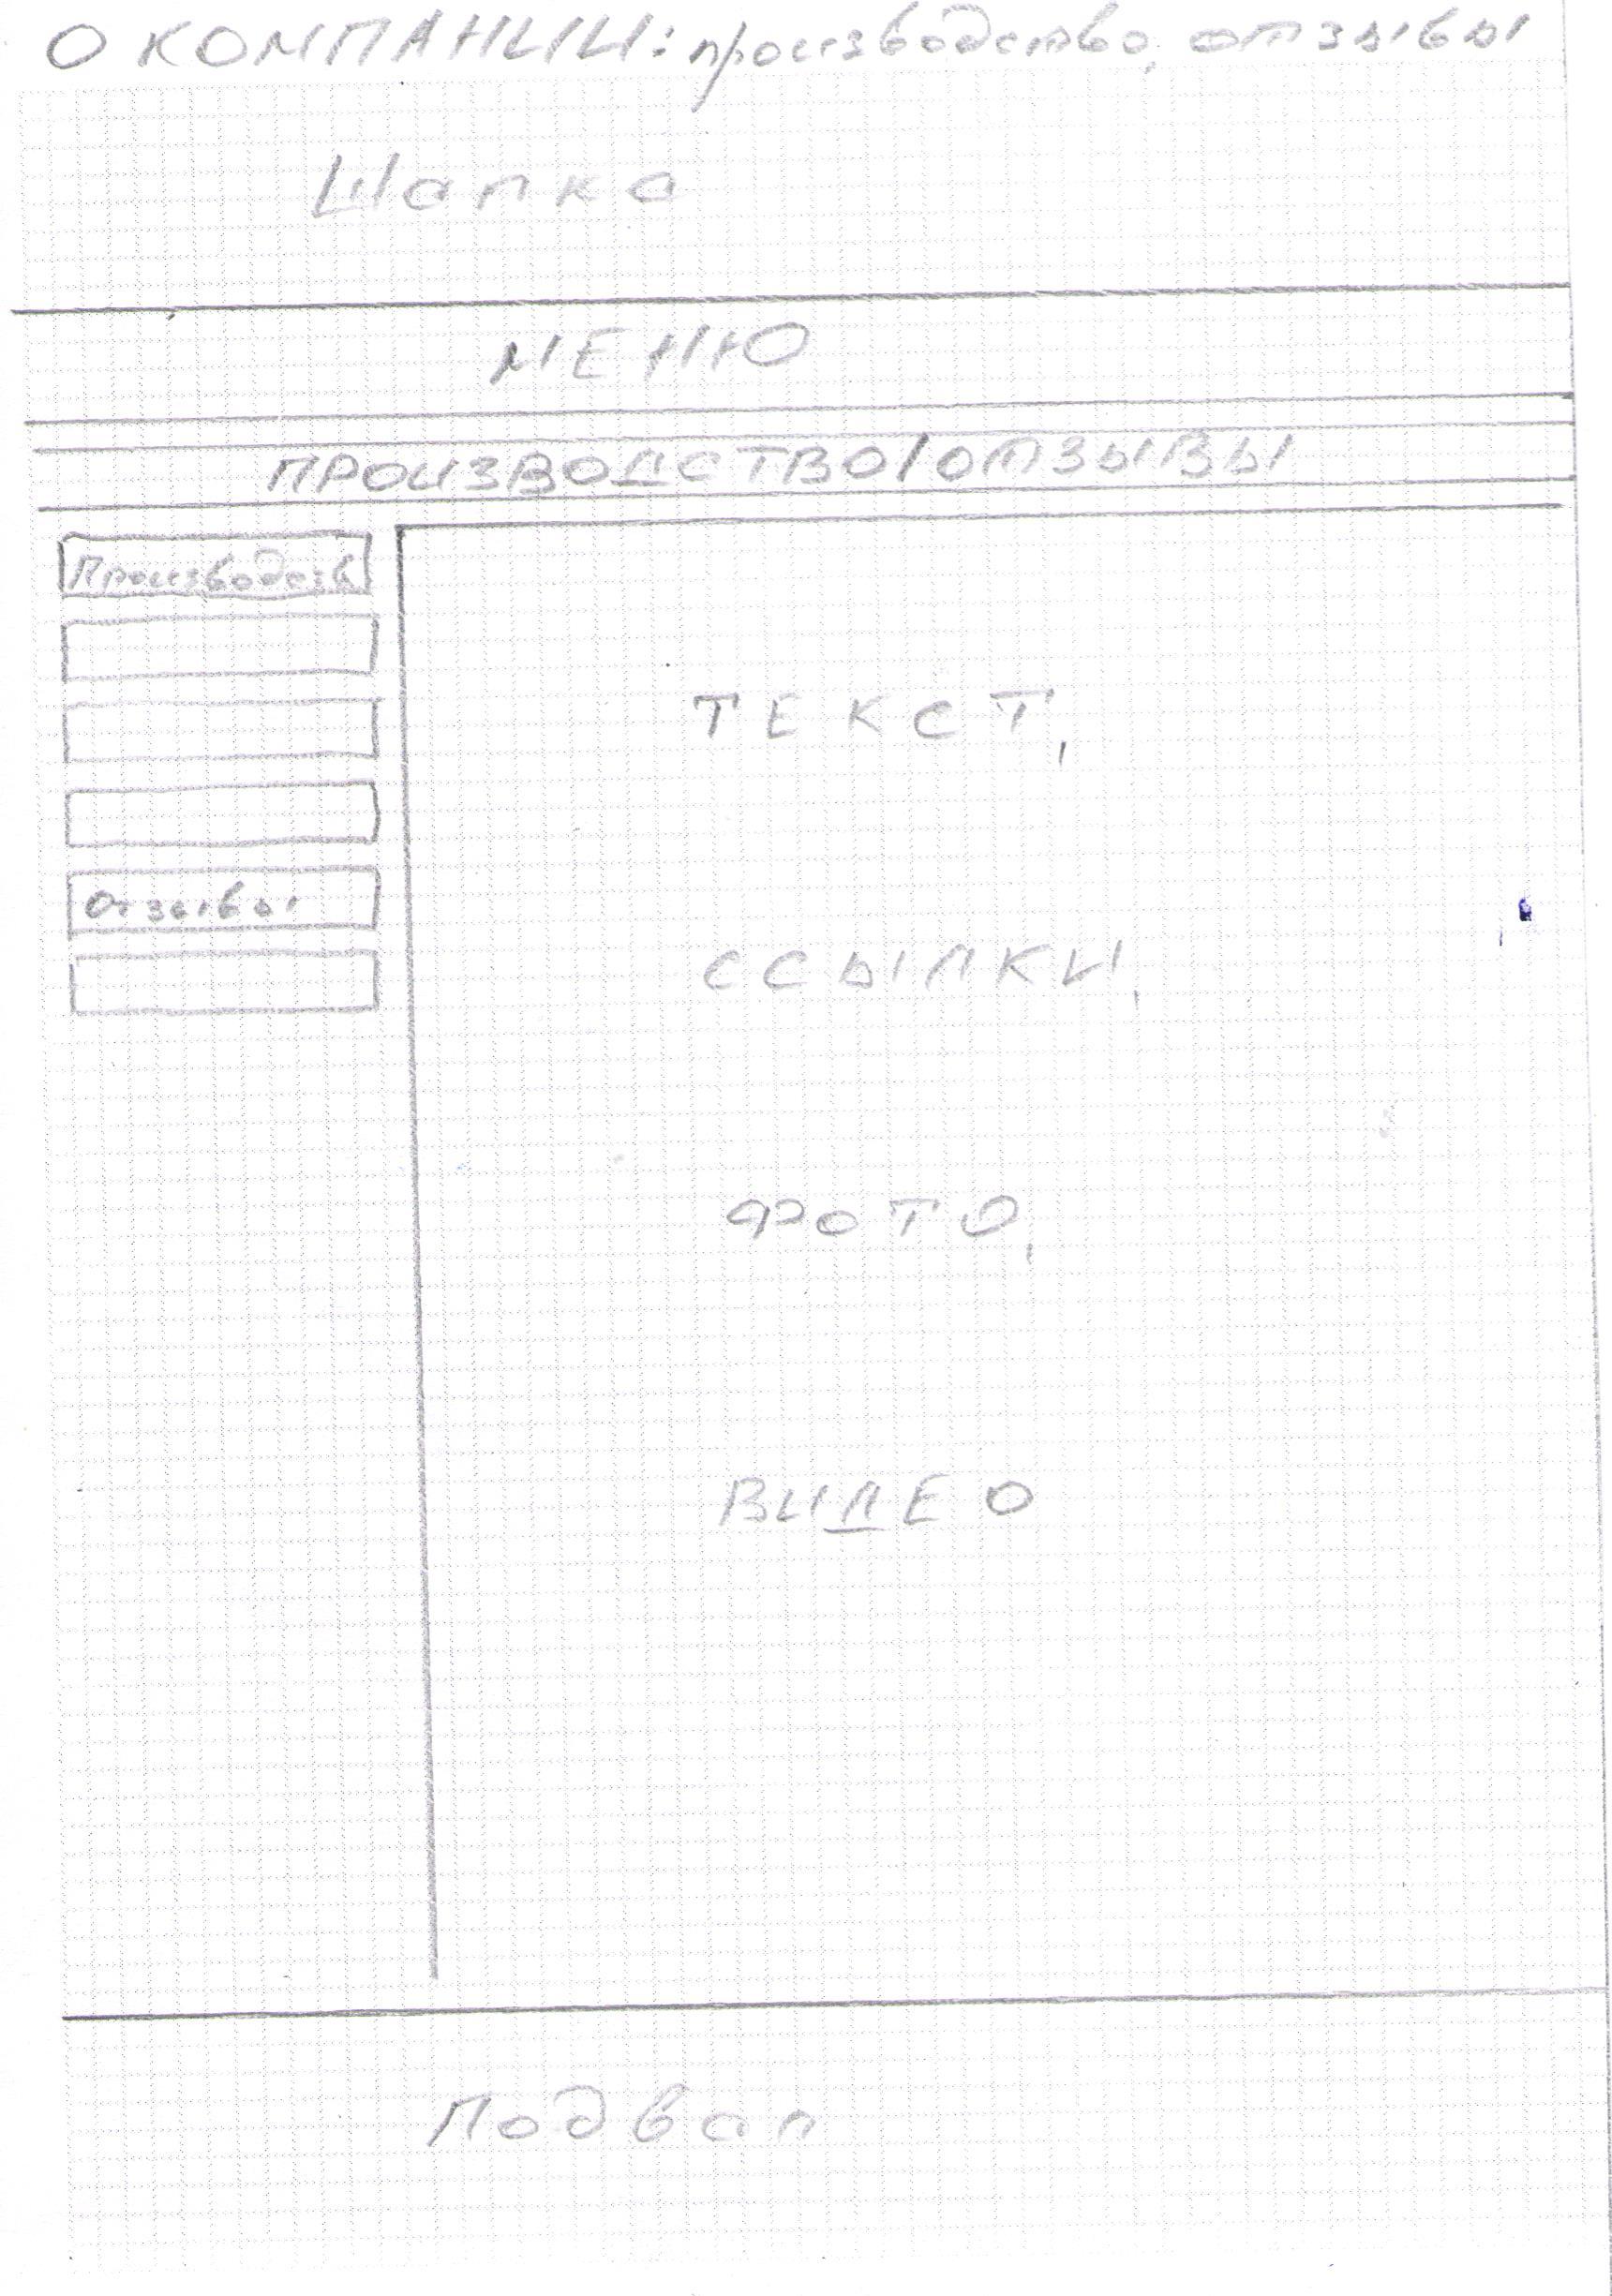 О КОМПАНИИ: производство, отзывы
Шапка
МЕНЮ
ПРОИЗВОДСТВО/ОТЗЫВЫ
Производств
Отзывы
ТЕКСТ,
ССЫЛКИ,
ФОТО,
ВИДЕО
Подвал